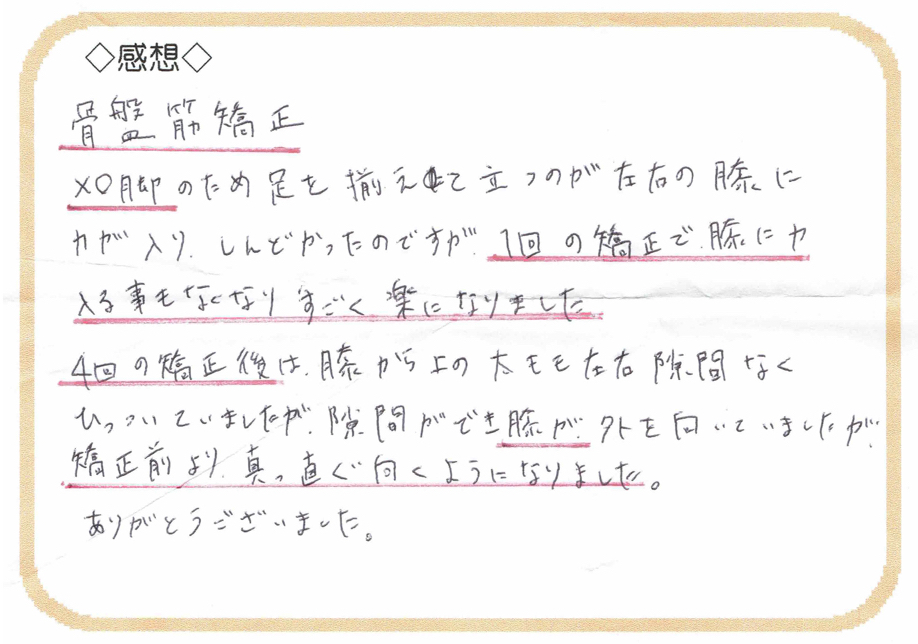 ◇感想◇
骨盤筋矯正
XO脚のため足を揃えて立つのが左右の膝に
力が入り、しんどかったのですが、1回の矯正で膝に力
入る事もなくなりすごく楽になりました
4回の矯正後は、膝から上の太モモ左右隙間なく
ひっついていましたが、隙間ができ膝が外を向いていましたが、
矯正前より、真っ直ぐ向くようになりました。
ありがとうございました。